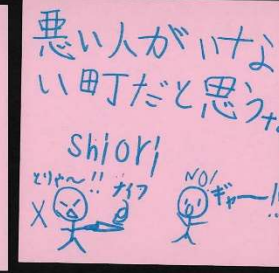 悪い人がいな
い町だと思うな
shiori
とりゃ〜!! ナイフ NO!
ギャー!!
X